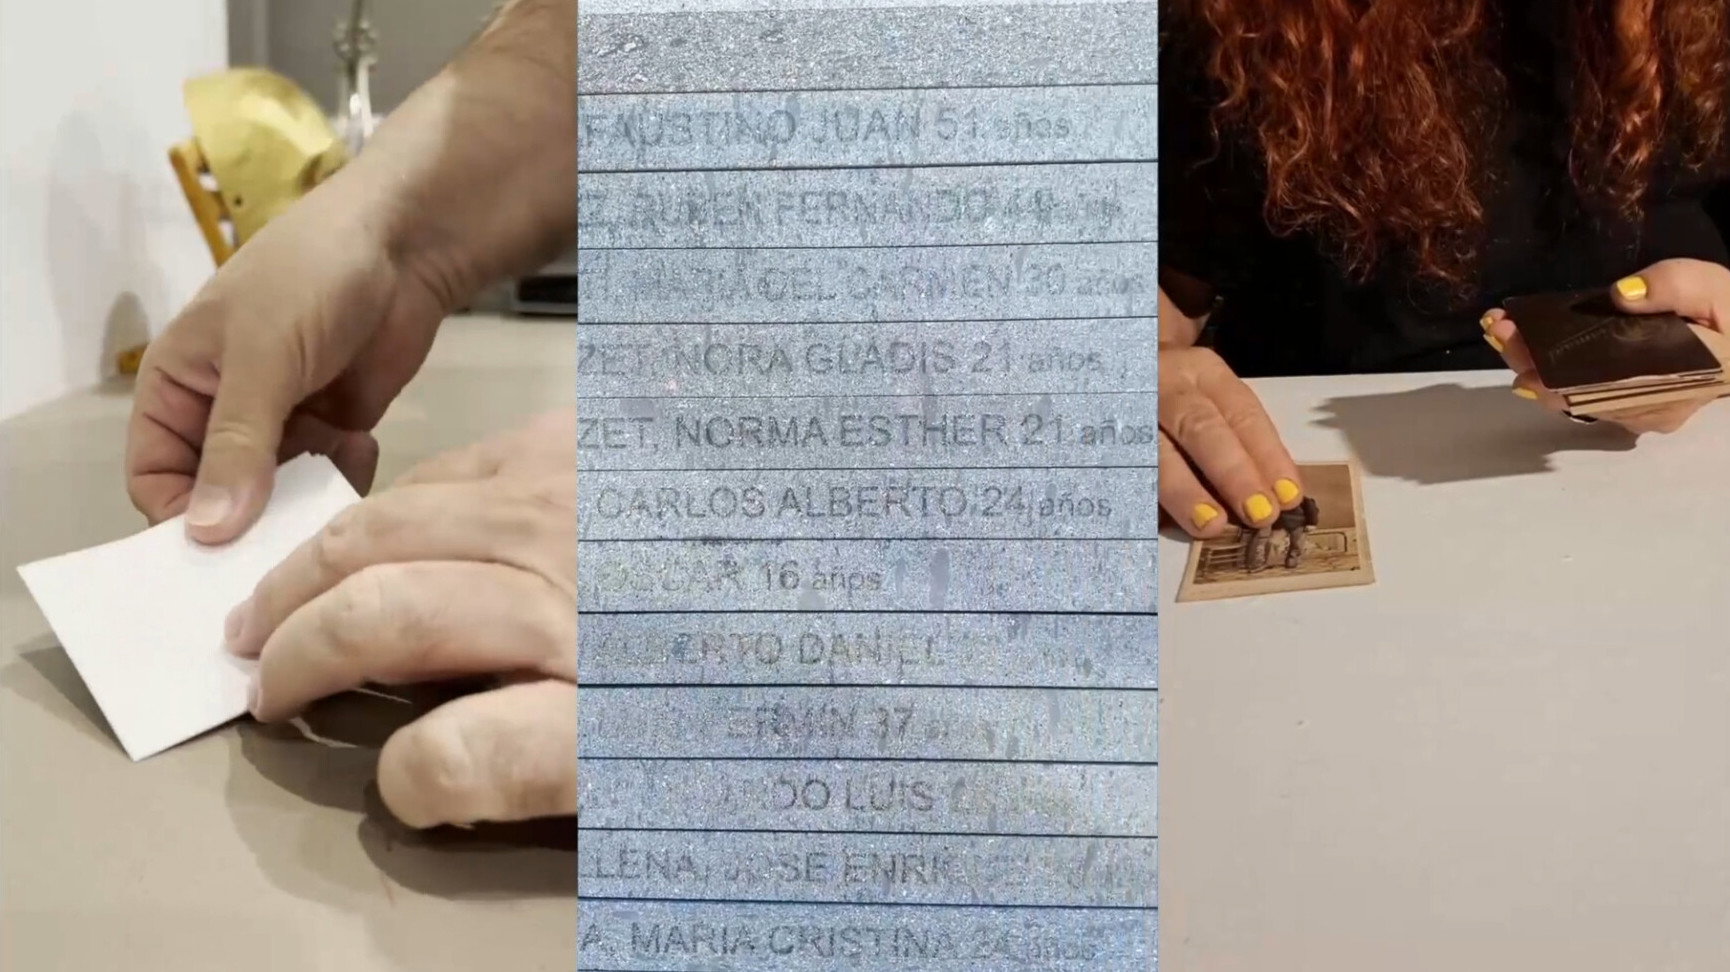 FAUSTINO JUAN 51 años
RUBEN FERNANDO
MARIA DEL CARMEN 30 años
ZET, NORA GLADIS 21 años
ZET, NORMA ESTHER 21 años
CARLOS ALBERTO 24 años
OSCAR 16 años
ALBERTO DANIEL
ERMIN 37
DO LUIS
LLENA, JOSE ENRIQUE
A, MARIA CRISTINA 24 años